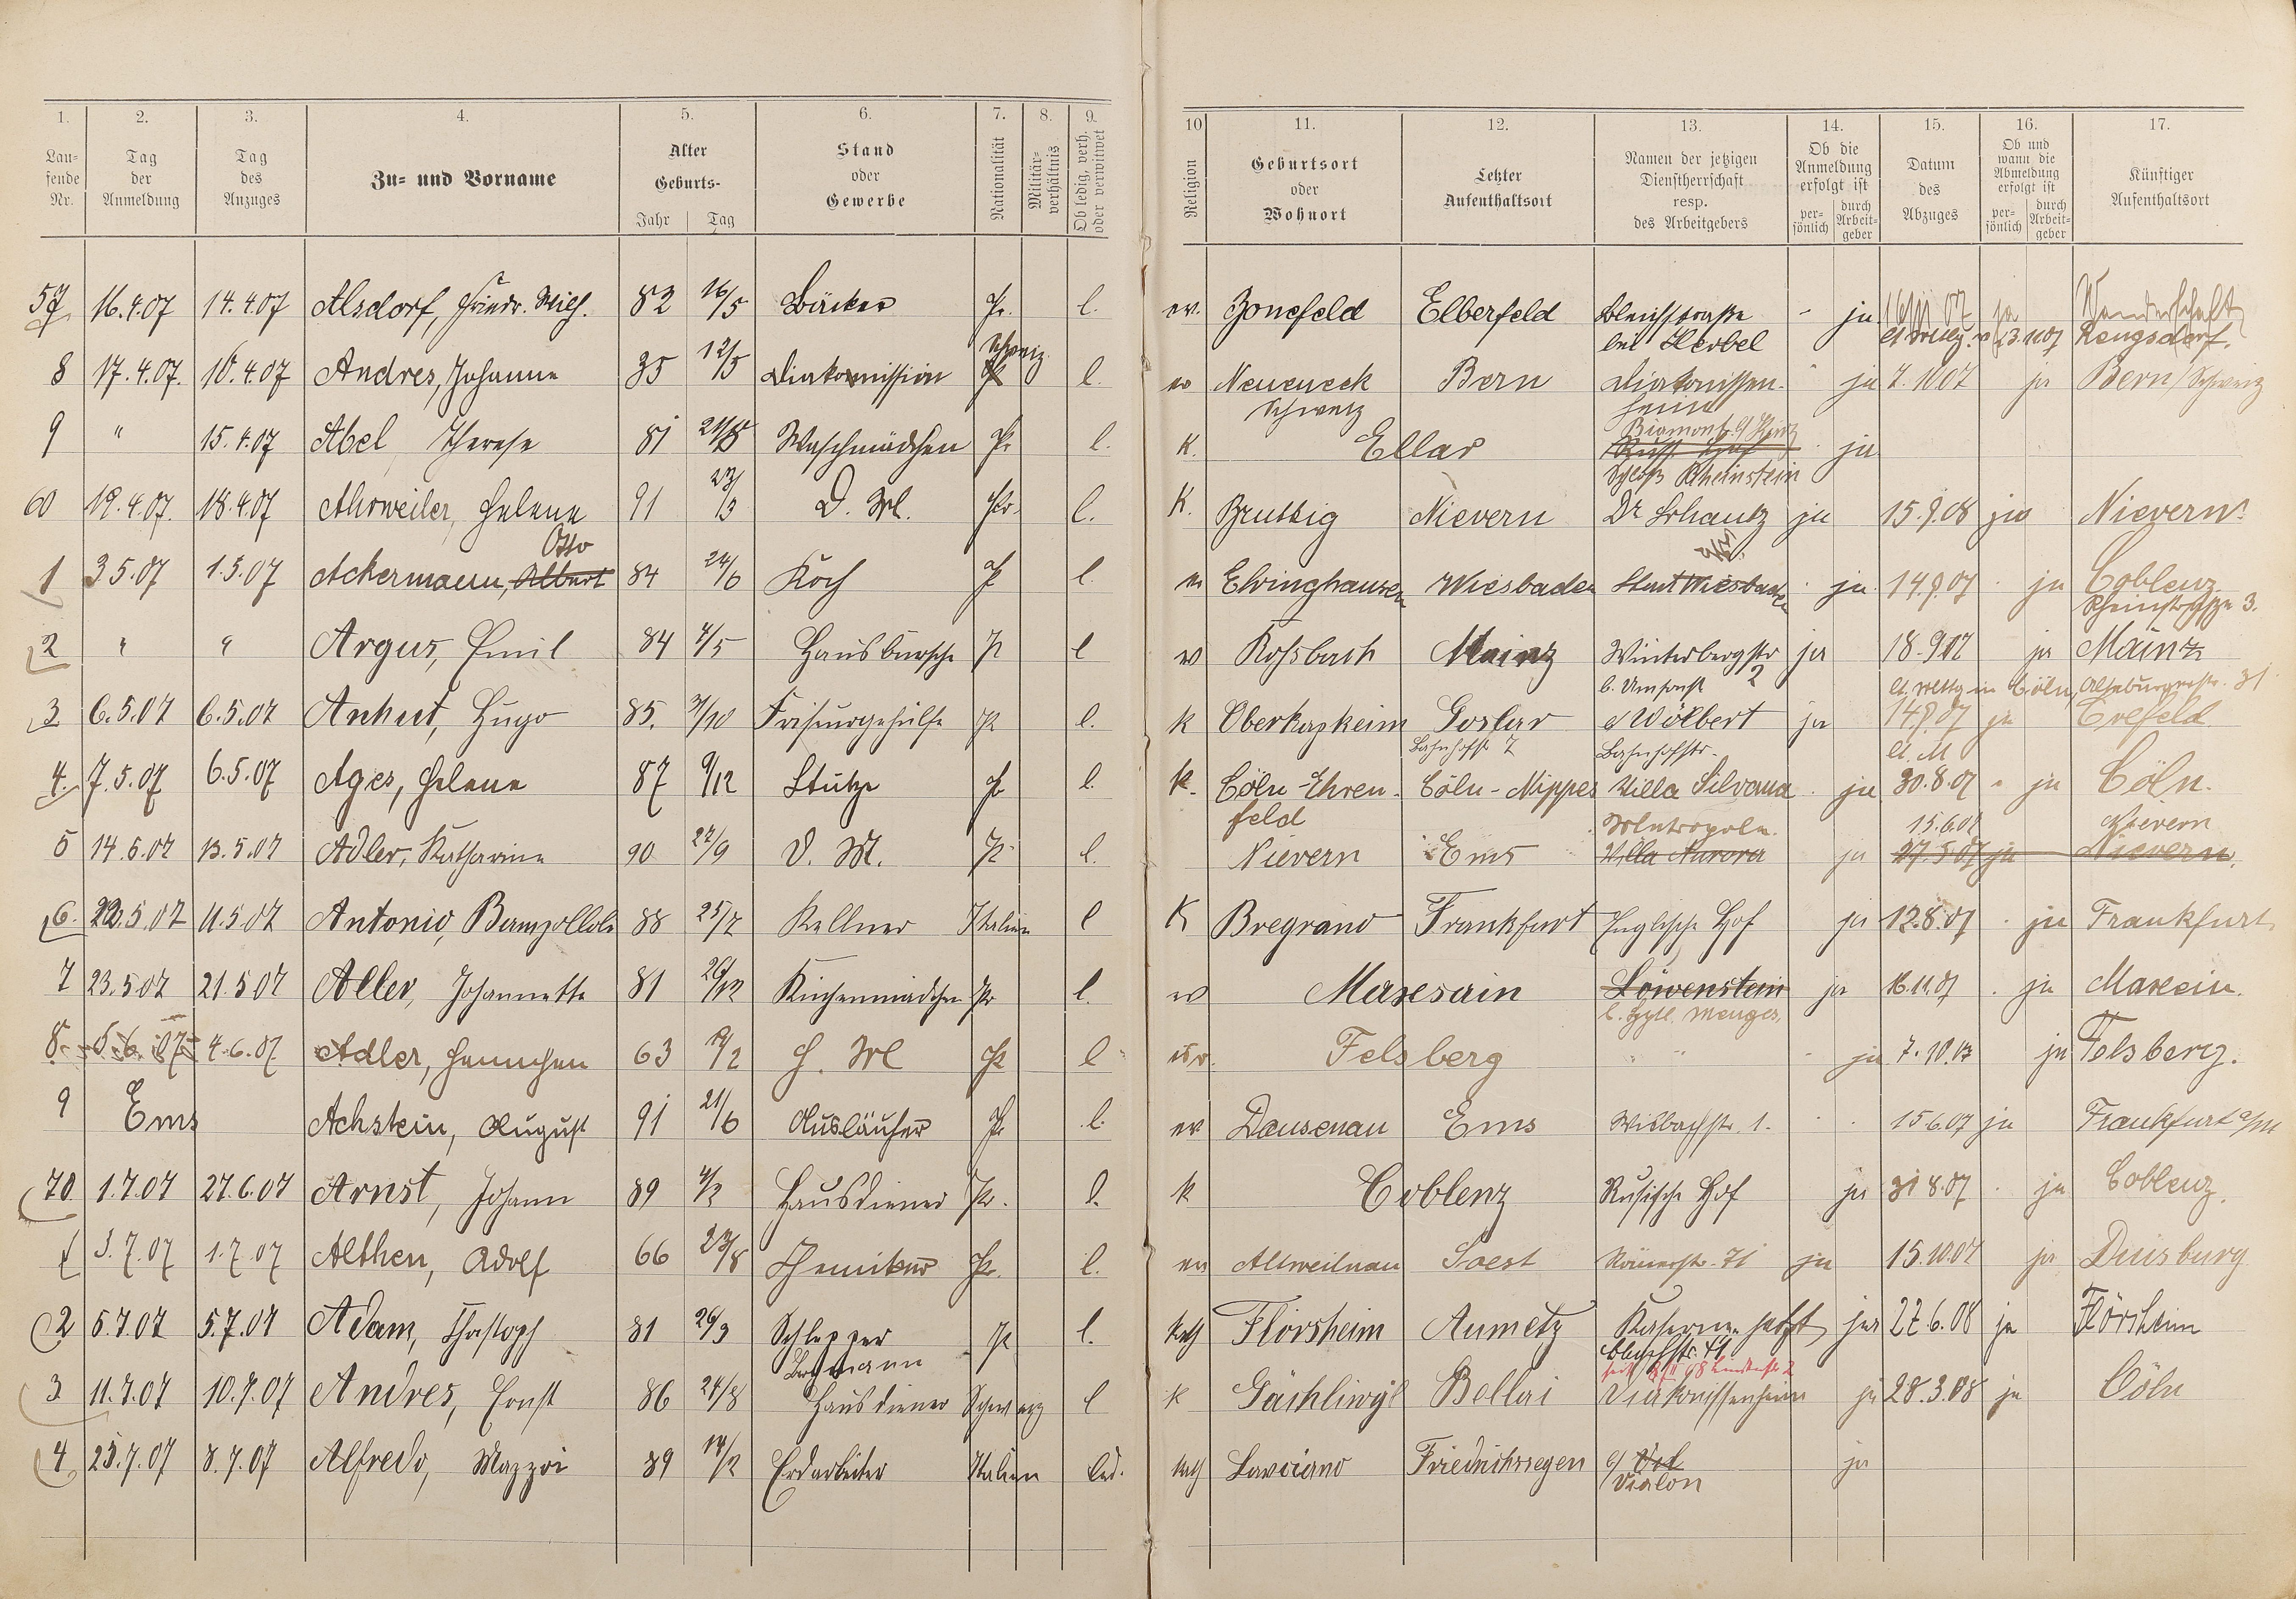 1. 2. 3. 4. 5. 6. 7. 8. 9. 10 11. 12. 13. 14. 15. 16. 17.
Lau-
fende
Nr.
Tag
der
Anmeldung
Tag
des
Anzuges
Zu- und Vorname
Alter
Geburts-
Jahr Tag
Stand
oder
Gewerbe
Nationalität
Militär-
verhältnis
Ob ledig, verh.
oder verwitwet
Religion
Geburtsort
oder
Wohnort
Letzter
Aufenthaltsort
Namen der jetzigen
Dienstherrschaft
resp.
des Arbeitgebers
Ob die
Anmeldung
erfolgt ist
per-
sönlich
durch
Arbeit-
geber
Datum
des
Abzuges
Ob und
wann die
Abmeldung
erfolgt ist
per-
sönlich
durch
Arbeit-
geber
Künftiger
Aufenthaltsort
57 16.4.07 14.4.07 Alsdorf, Friedr. Wilh. 82 16/5 Bäcker Pr. l. ev. Honefeld Elberfeld Bleichstraße - ja 16/11 07 ja Wanderschaft
bei Herbel 13.11.07 Rengsdorf.
Schweiz
8 17.4.07. 16.4.07 Andres, Johanna 35 12/5 Diakonissin l. ev Neueneck Bern Diakonissen- ja 7.10 07 ja Bern/Schweiz
Schweiz heim
9 " 15.4.07 Abel Therese 81 Waschmädchen Pr l. K. Ellar Russ. Hof ja
Schloß Rheinstein
60 19.4.07. 18.4.07 Ahrweiler, Helene 91 23/3 D. M. Pr. l. K. Bruttig Nievern Dr ja 15.9.08 ja Nievern
Otto
1 3 5.07 1.5.07 Ackermann, Albert 84 24/6 Koch P l. ev Elvinghausen Wiesbaden Stadt Wiesbaden ja 14.9.07 ja Coblenz
Rheinstraße 3.
2 " " Argus, Emil 84 4/5 Hausbursche Pr l ev Rossbach Mainz Winterbergstr ja 18.9.07 ja Mainz
2
3 6.5.07 6.5.07 Anhut, Hugo 85. 7/10 Friseurgehülfe Pr l. k Oberkapkeim Goslar Wölbert ja 14.9.07 ja Crefeld
Bahnhofstr 7 Bahnhofstr.
4. 7.5.07 6.5.07 Ages, Helena 87 9/12 Stütze Pr l. K. Cöln-Ehren- Cöln-Nippes Villa Silvana ja 30.8.07 " ja Cöln.
feld Metropole. 15.6.07 Nievern
5 14.5.07 13.5.07 Adler, Katharina 90 22/9 D. M. Pr l. Nievern Ems Villa Aurora ja 27.5.07 ja Nievern.
6. 22.5.07 11.5.07 Antonio, 88 25/7 Kellner Italien l K Bregrano Frankfurt Englische Hof ja 12.8.07 ja Frankfurt
7 23.5.07 21.5.07 Aller, Johannette 81 Küchenmädchen Pr l. ev Marsain Löwenstein ja 16.11.07 ja
8. 5.6.07 4.6.07 Adler, Hannchen 63 H. M Pr l isr. Felsberg " " ja 7.10.07 ja Felsberg.
9 Ems Achstein, August 91 21/6 Ausläufer Pr. l. ev Dausenau Ems Wilbachstr. 1. 15 6.07 ja Frankfurt a/M
70 1.7.07 27.6.07 Arnst, Johann 89 4/2 Hausdiener Pr. l. k Coblenz Rusische Hof ja 31 8.07 ja Coblenz.
1 3.7.07 1.7.07 Althen, Adolf 66 23/8 Chemiker Pr. l. ev Altweilnau Soest Römerstr. 71 ja 15.10.07 ja Duisburg
2 5.7.07 5.7.07 Adam, Christoph 81 26/3 Schlepper Pr l. kath Flörsheim Aumetz ja 27.6.08 ja Flörsheim
Bergmann
3 11.7.07 10.7.07 Andres, Ernst 86 24/8 Hausdiener Schweiz l k Gächliwyl Bellai Diakonissenheim ja 28.3.08 ja Cöln
4 25.7.07 8.7.07 Alfredo, Mazzoi 89 14/2 Erdarbeiter Italien led. kath Laviano Friedrichssegen ja
Vialon